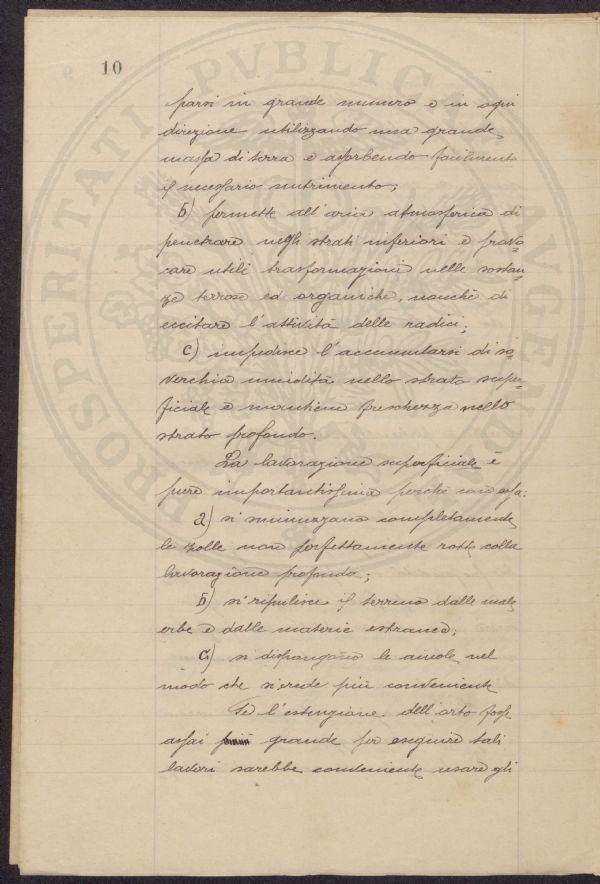 10
PROSPERITATI PVBLICAE AVGENDAE
parsi in grande numero e in ogni
direzione utilizzando una grande
massa di terra e assorbendo facilmente
il necessario nutrimento;
b) permette all'aria atmosferica di
penetrare negli strati inferiori e provo-
care utili trasformazioni nelle sostan-
ze terrose ed organiche, nonchè di
eccitare l'attività delle radici;
c) impedisce l'accumularsi di so-
verchia umidità nello strato super-
ficiale e mantiene freschezza nello
strato profondo.
La lavorazione superficiale è
pure importantissima perchè con essa:
a) si sminuzzano completamente
le zolle non perfettamente rotte colla
lavorazione profonda;
b) si ripulisce il terreno dalle male
erbe e dalle materie estranee;
c) si dispongano le aiuole nel
modo che si crede più conveniente
Se l'estenzione dell'orto fosse
assai grande per eseguire tali
lavori sarebbe conveniente usare gli